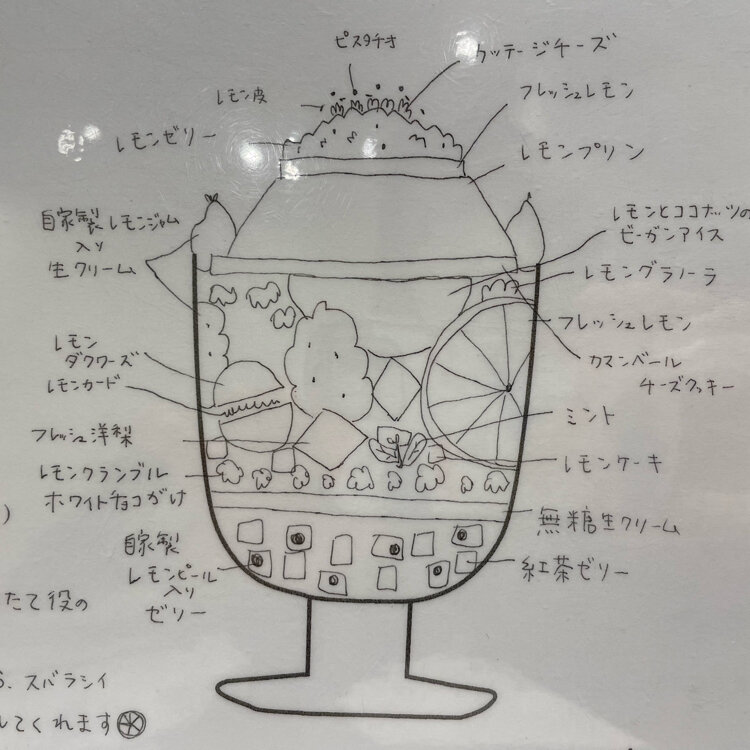 ピスタチオ
カッテージチーズ
レモン皮
フレッシュレモン
レモンゼリー
レモンプリン
自家製レモンジャム
入り
生クリーム
レモンとココナッツの
ビーガンアイス
レモングラノーラ
フレッシュレモン
レモン
ダクワーズ
レモンカード
カマンベール
チーズクッキー
フレッシュ洋梨
ミント
レモンクランブル
ホワイトチョコがけ
レモンケーキ
無糖生クリーム
自家製
レモンピール
入り
ゼリー
紅茶ゼリー
)
たて役の
スバラシイ
してくれます